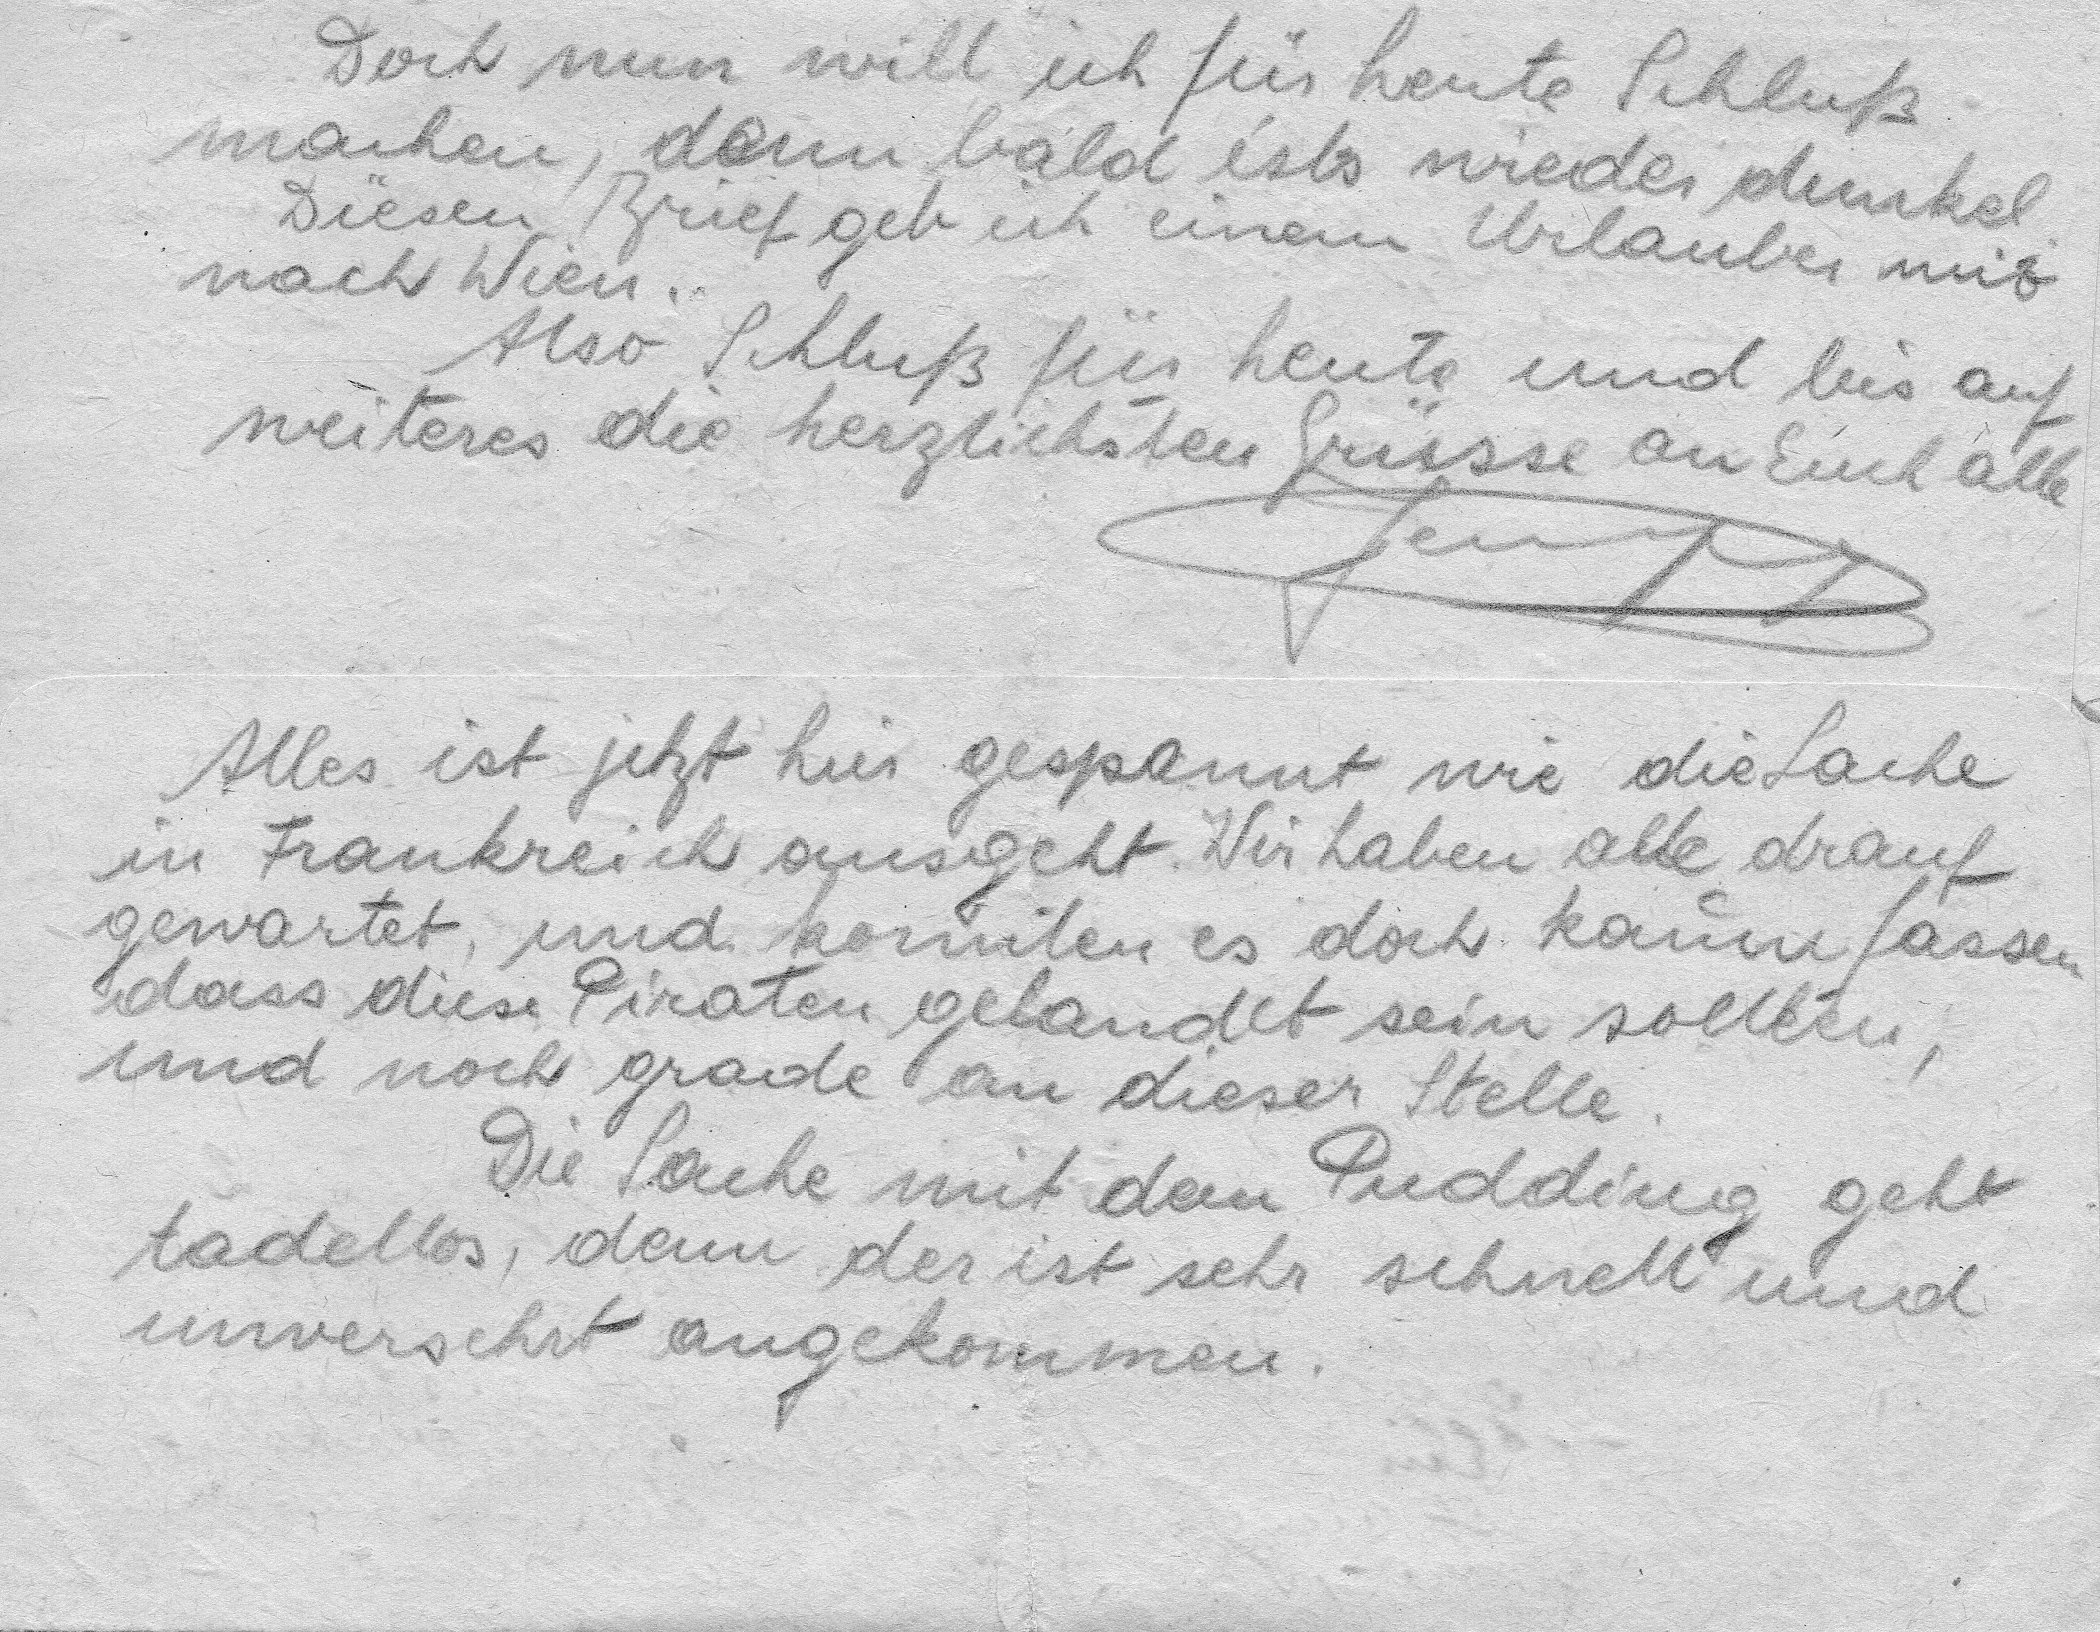 Doch nun will ich für heute Schluß
machen, denn bald ists wieder dunkel.
Diesen Brief geb ich einem Urlauber mit
nach Wien.
Also Schluß für heute und bis auf
weiteres die herzlichsten Grüsse an Euch alle
Alles ist jetzt hier gespannt wie die Sache
in Frankreich ausgeht. Wir haben alle drauf
gewartet, und konnten es doch kaum fassen
dass diese Piraten gelandet sein sollten,
und noch grade an dieser Stelle.
Die Sache mit dem Pudding geht
tadellos, denn der ist sehr schnell und
unversehrt angekommen.